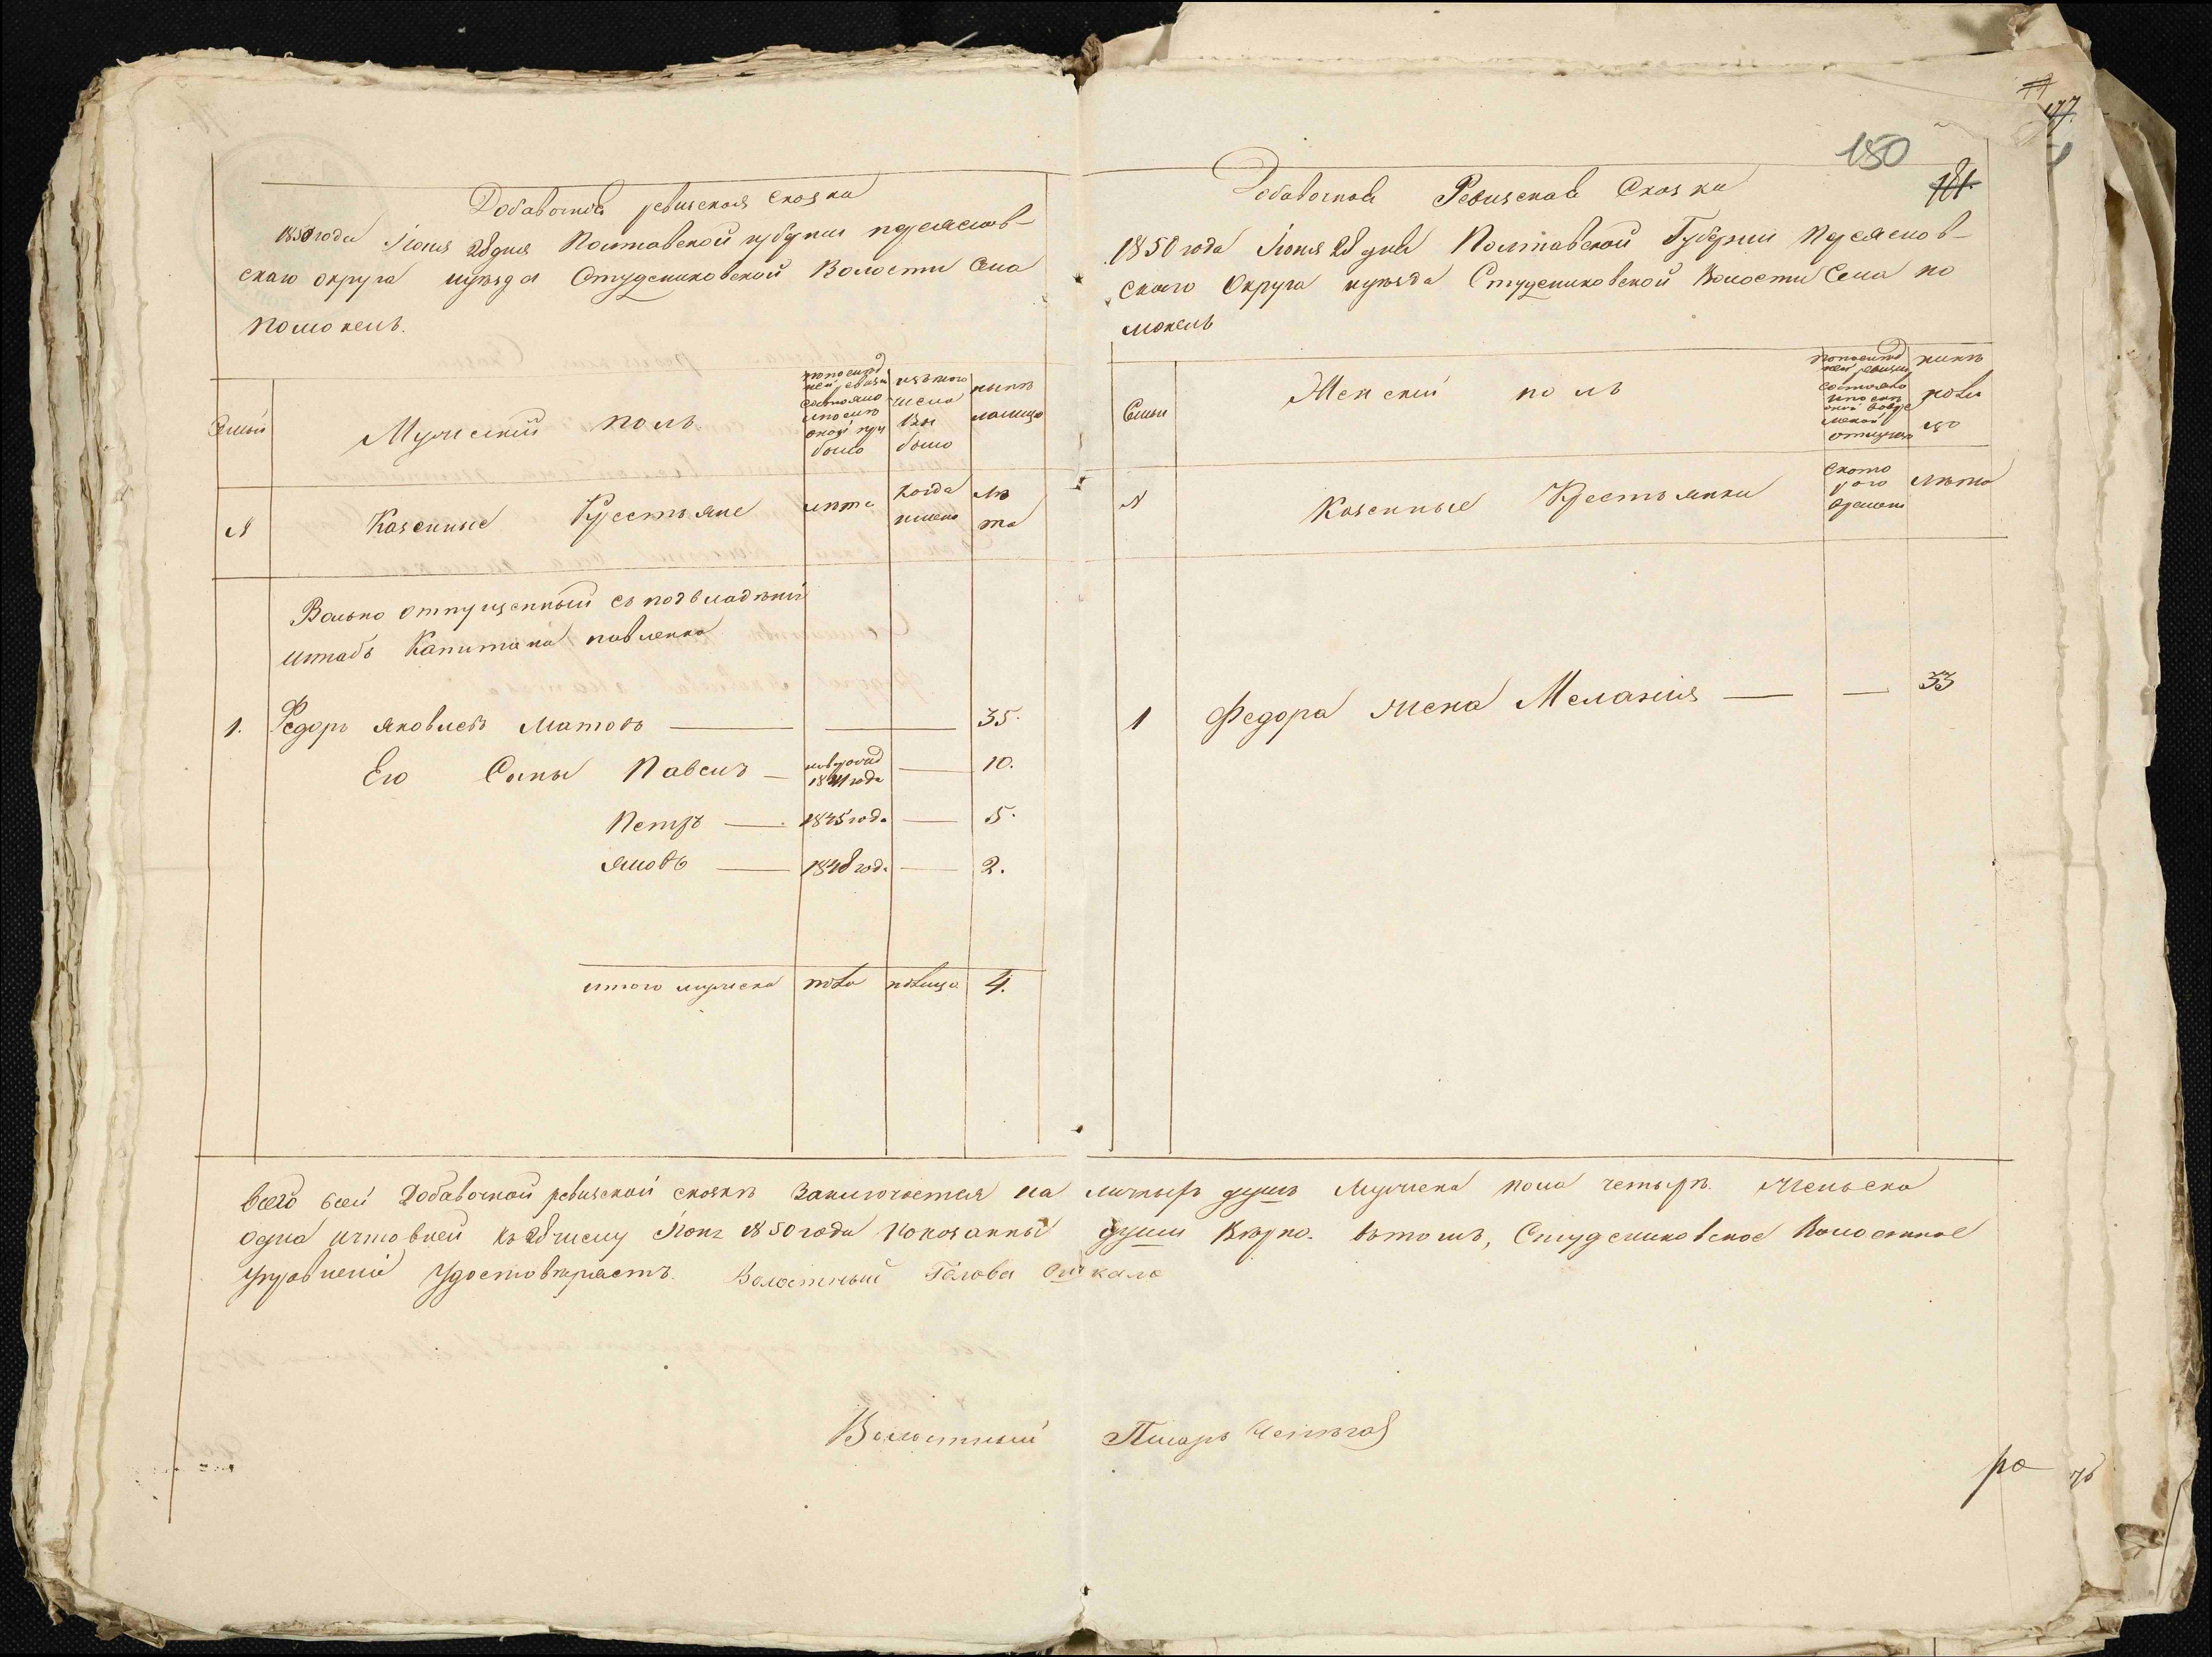 150
181.
177.
Добавочная ревизская сказка
1850 года Июня 28 дня Полтавской губернии переяслов-
скаго округа иуезда Студениковской Волости Села
помокель.
Семьи
Мужеский полъ
по послед
ней ревизи
состояло
и после
оной при
было
изътого
числа
вы
было
ныне
налицо
№
Казенные Крестьяне
лета
когда
имено
ле
та
Вольно отпущенный съ подвладения
штабъ Капитана павленка
1. Федоръ яковлевъ матовъ — — 35.
Его Сыны Павелъ — новорожд 1841 года — 10.
Петръ — 1845 года — 5.
яковъ — 1848 года — 2.
итого мужеска пола налицо 4.
Добавочная Ревизская Сказка
1850 года Июня 28 дня Полтавской Губернии Переяслов-
скаго Округа иуезда Студениковской Волости Села по
мокель
Семьи
Женский полъ
по послед
ней ревизии
состояло
и после
оной вовре
менной
отлучке
ныне
нали
цо
№
Казенные Крестьянки
ското
раго
времени
лета
1 Федора жена Мелания — — 33
Всего всей Добавочной ревизской сказке Заключается на личныхъ душъ Мужеска пола четыре. Женьска
одна ичто вней къ 28 числу Июня 1850 года показанные души Верно. вътомъ, Студениковское Волостное
Управление Удостоверяетъ. Волостный Голова
Волостный Писарь